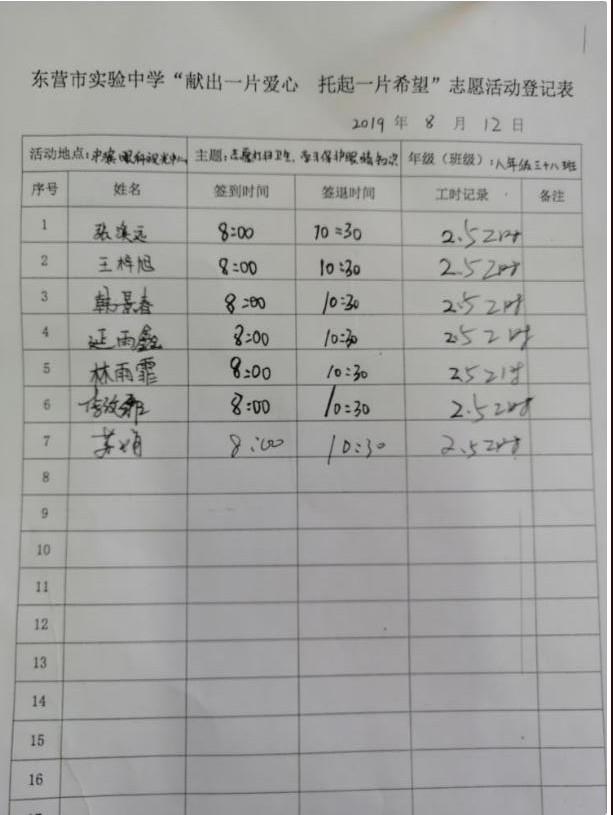 东营市实验中学“献出一片爱心 托起一片希望”志愿活动登记表
2019年 8 月 12 日
活动地点: 眼科视光中心 主题:志愿打扫卫生,学习保护眼睛知识 年级(班级):八年级三十八班
序号 姓名 签到时间 签退时间 工时记录 备注
1 张溪远 8:00 10:30 2.5小时
2 王梓旭 8:00 10:30 2.5小时
3 韩景春 8:00 10:30 2.5小时
4 延雨鑫 8:00 10:30 2.5小时
5 林雨霏 8:00 10:30 2.5小时
6 8:00 10:30 2.5小时
7 8:00 10:30 2.5小时
8
9
10
11
12
13
14
15
16